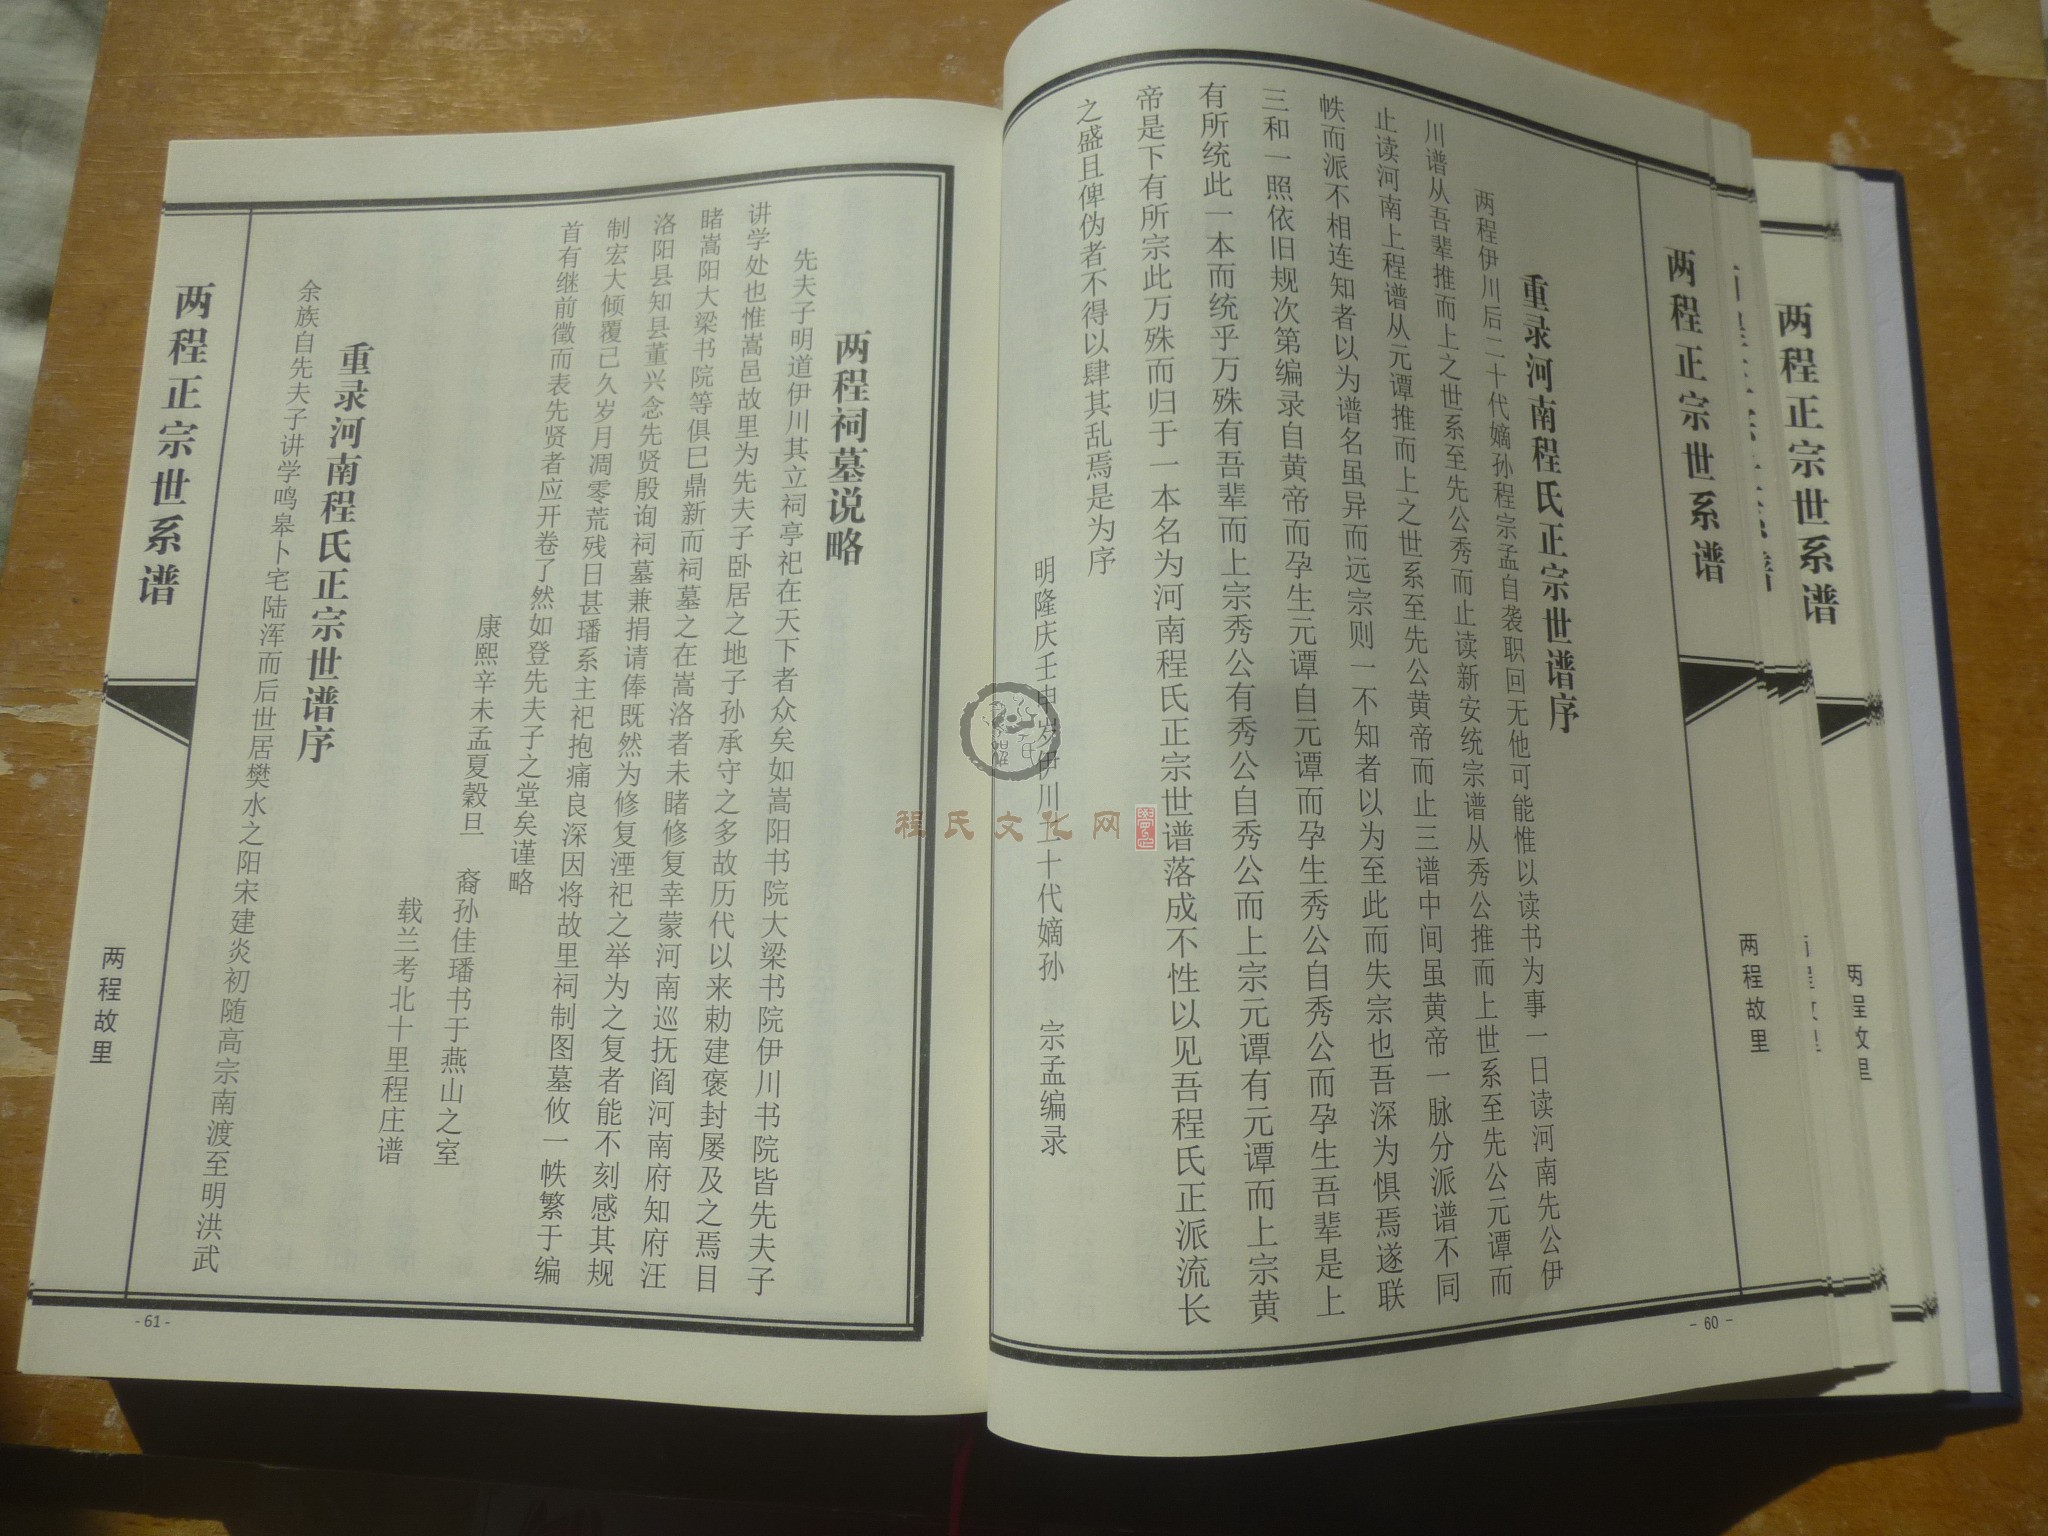 两程正宗世系谱
两程故里
两程正宗世系谱
两程故里
- 60 -
重录河南程氏正宗世谱序
两程伊川后二十代嫡孙程宗孟自袭职回无他可能惟以读书为事一日读河南先公伊
川谱从吾辈推而上之世系至先公秀而止读新安统宗谱从秀公推而上世系至先公元谭而
止读河南上程谱从元谭推而上之世系至先公黄帝而止三谱中间虽黄帝一脉分派谱不同
帙而派不相连知者以为谱名虽异而远宗则一不知者以为至此而失宗也吾深为惧焉遂联
三和一照依旧规次第编录自黄帝而孕生元谭自元谭而孕生秀公自秀公而孕生吾辈是上
有所统此一本而统乎万殊有吾辈而上宗秀公有秀公自秀公而上宗元谭有元谭而上宗黄
帝是下有所宗此万殊而归于一本名为河南程氏正宗世谱落成不性以见吾程氏正派流长
之盛且俾伪者不得以肆其乱焉是为序
明隆庆壬申岁伊川二十代嫡孙 宗孟编录
程氏文化网
两程祠墓说略
先夫子明道伊川其立祠亭祀在天下者众矣如嵩阳书院大梁书院伊川书院皆先夫子
讲学处也惟嵩邑故里为先夫子卧居之地子孙承守之多故历代以来勅建褒封屡及之焉目
睹嵩阳大梁书院等俱巳鼎新而祠墓之在嵩洛者未睹修复幸蒙河南巡抚阎河南府知府汪
洛阳县知县董兴念先贤殷询祠墓兼捐请俸既然为修复湮祀之举为之复者能不刻感其规
制宏大倾覆已久岁月凋零荒残日甚璠系主祀抱痛良深因将故里祠制图墓攸一帙繁于编
首有继前徵而表先贤者应开卷了然如登先夫子之堂矣谨略
康熙辛未孟夏穀旦 裔孙佳璠书于燕山之室
载兰考北十里程庄谱
重录河南程氏正宗世谱序
余族自先夫子讲学鸣皋卜宅陆浑而后世居樊水之阳宋建炎初随高宗南渡至明洪武
两程正宗世系谱
两程故里
- 61 -